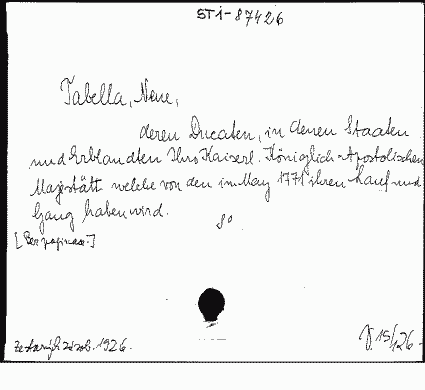 ST i-87426
Tabella, Neue,
deren Ducaten, in denen Staaten
und Erblandten Ihro Kaiserl. Königlich-Apostolischen
Majestätt welche von den im May 1771 ihren Lauf und
Gang haben wird.
8°
1926.
15/126.